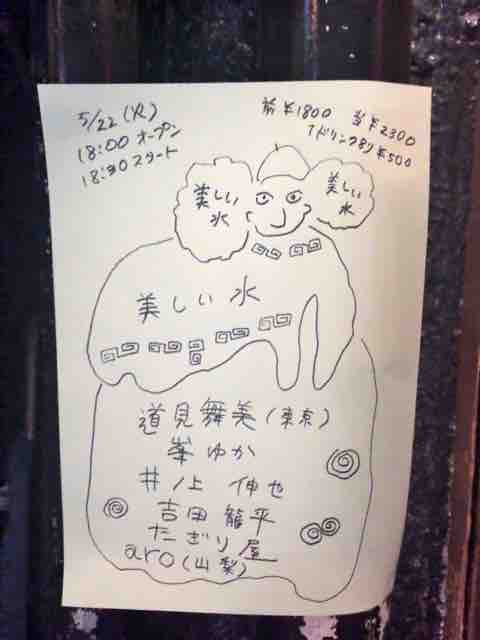 5/22 (火)
18:00 オープン
18:30 スタート
前 ¥1800 当 ¥2300
1ドリンク別り ¥500
美しい
水
美しい
水
美しい 水
道見舞美 (東京)
峯 ゆか
井ノ上 伸也
吉田 龍平
たぎり屋
aro (山梨)